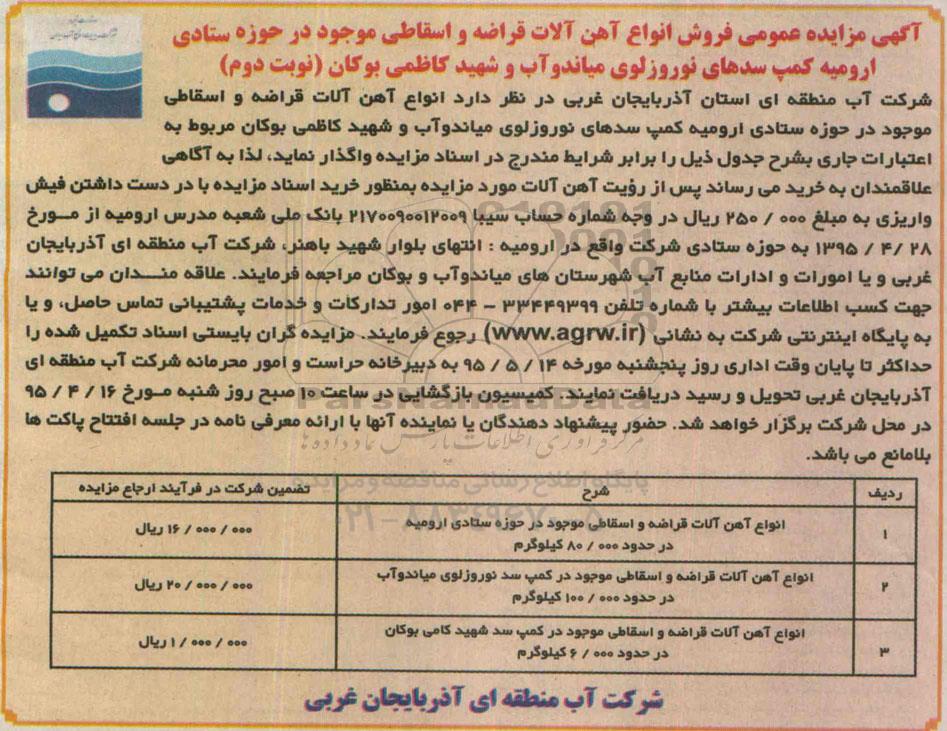 آگهی مزایده عمومی فروش انواع آهن آلات قراضه و اسقاطی موجود در حوزه ستادی
ارومیه کمپ سدهای نوروزلوی میاندوآب و شهید کاظمی بوکان (نوبت دوم)
شرکت آب منطقه ای استان آذربایجان غربی در نظر دارد انواع آهن آلات قراضه و اسقاطی
موجود در حوزه ستادی ارومیه کمپ سدهای نوروزلوی میاندوآب و شهید کاظمی بوکان مربوط به
اعتبارات جاری بشرح جدول ذیل را برابر شرایط مندرج در اسناد مزایده واگذار نماید، لذا به آگاهی
علاقمندان به خرید می رساند پس از رؤیت آهن آلات مورد مزایده بمنظور خرید اسناد مزایده با در دست داشتن فیش
واریزی به مبلغ ۰۰۰ / ۲۵۰ ریال در وجه شماره حساب سیبا ۲۱۷۰۰۹۰۰۱۲۰۰۹ بانک ملی شعبه مدرس ارومیه از مورخ
۲۸ / ۴ / ۱۳۹۵ به حوزه ستادی شرکت واقع در ارومیه : انتهای بلوار شهید باهنر، شرکت آب منطقه ای آذربایجان
غربی و یا امورات و ادارات منابع آب شهرستان های میاندوآب و بوکان مراجعه فرمایند. علاقه منـدان می توانند
جهت کسب اطلاعات بیشتر با شماره تلفن ۳۳۴۴۹۳۹۹ - ۰۴۴ امور تدارکات و خدمات پشتیبانی تماس حاصل، و یا
به پایگاه اینترنتی شرکت به نشانی (www.agrw.ir) رجوع فرمایند. مزایده گران بایستی اسناد تکمیل شده را
حداکثر تا پایان وقت اداری روز پنجشنبه مورخه ۱۴ / ۵ / ۹۵ به دبیرخانه حراست و امور محرمانه شرکت آب منطقه ای
آذربایجان غربی تحویل و رسید دریافت نمایند. کمیسیون بازگشایی در ساعت ۱۰ صبح روز شنبه مـورخ ۱۶ / ۴ / ۹۵
در محل شرکت برگزار خواهد شد. حضور پیشنهاد دهندگان یا نماینده آنها با ارائه معرفی نامه در جلسه افتتاح پاکت ها
بلامانع می باشد.
ParsNamadData
مرکز فرآوری اطلاعات پارس نماد داده ها
پایگاه اطلاع رسانی مناقصه و مزایده
ردیف شرح تضمین شرکت در فرآیند ارجاع مزایده
۱ انواع آهن آلات قراضه و اسقاطی موجود در حوزه ستادی ارومیه ۰۰۰ / ۰۰۰ / ۱۶ ریال
در حدود ۰۰۰ / ۸۰ کیلوگرم
۲ انواع آهن آلات قراضه و اسقاطی موجود در کمپ سد نوروزلوی میاندوآب ۰۰۰ / ۰۰۰ / ۲۰ ریال
در حدود ۰۰۰ / ۱۰۰ کیلوگرم
۳ انواع آهن آلات قراضه و اسقاطی موجود در کمپ سد شهید کامی بوکان ۰۰۰ / ۰۰۰ / ۱ ریال
در حدود ۰۰۰ / ۶ کیلوگرم
شرکت آب منطقه ای آذربایجان غربی